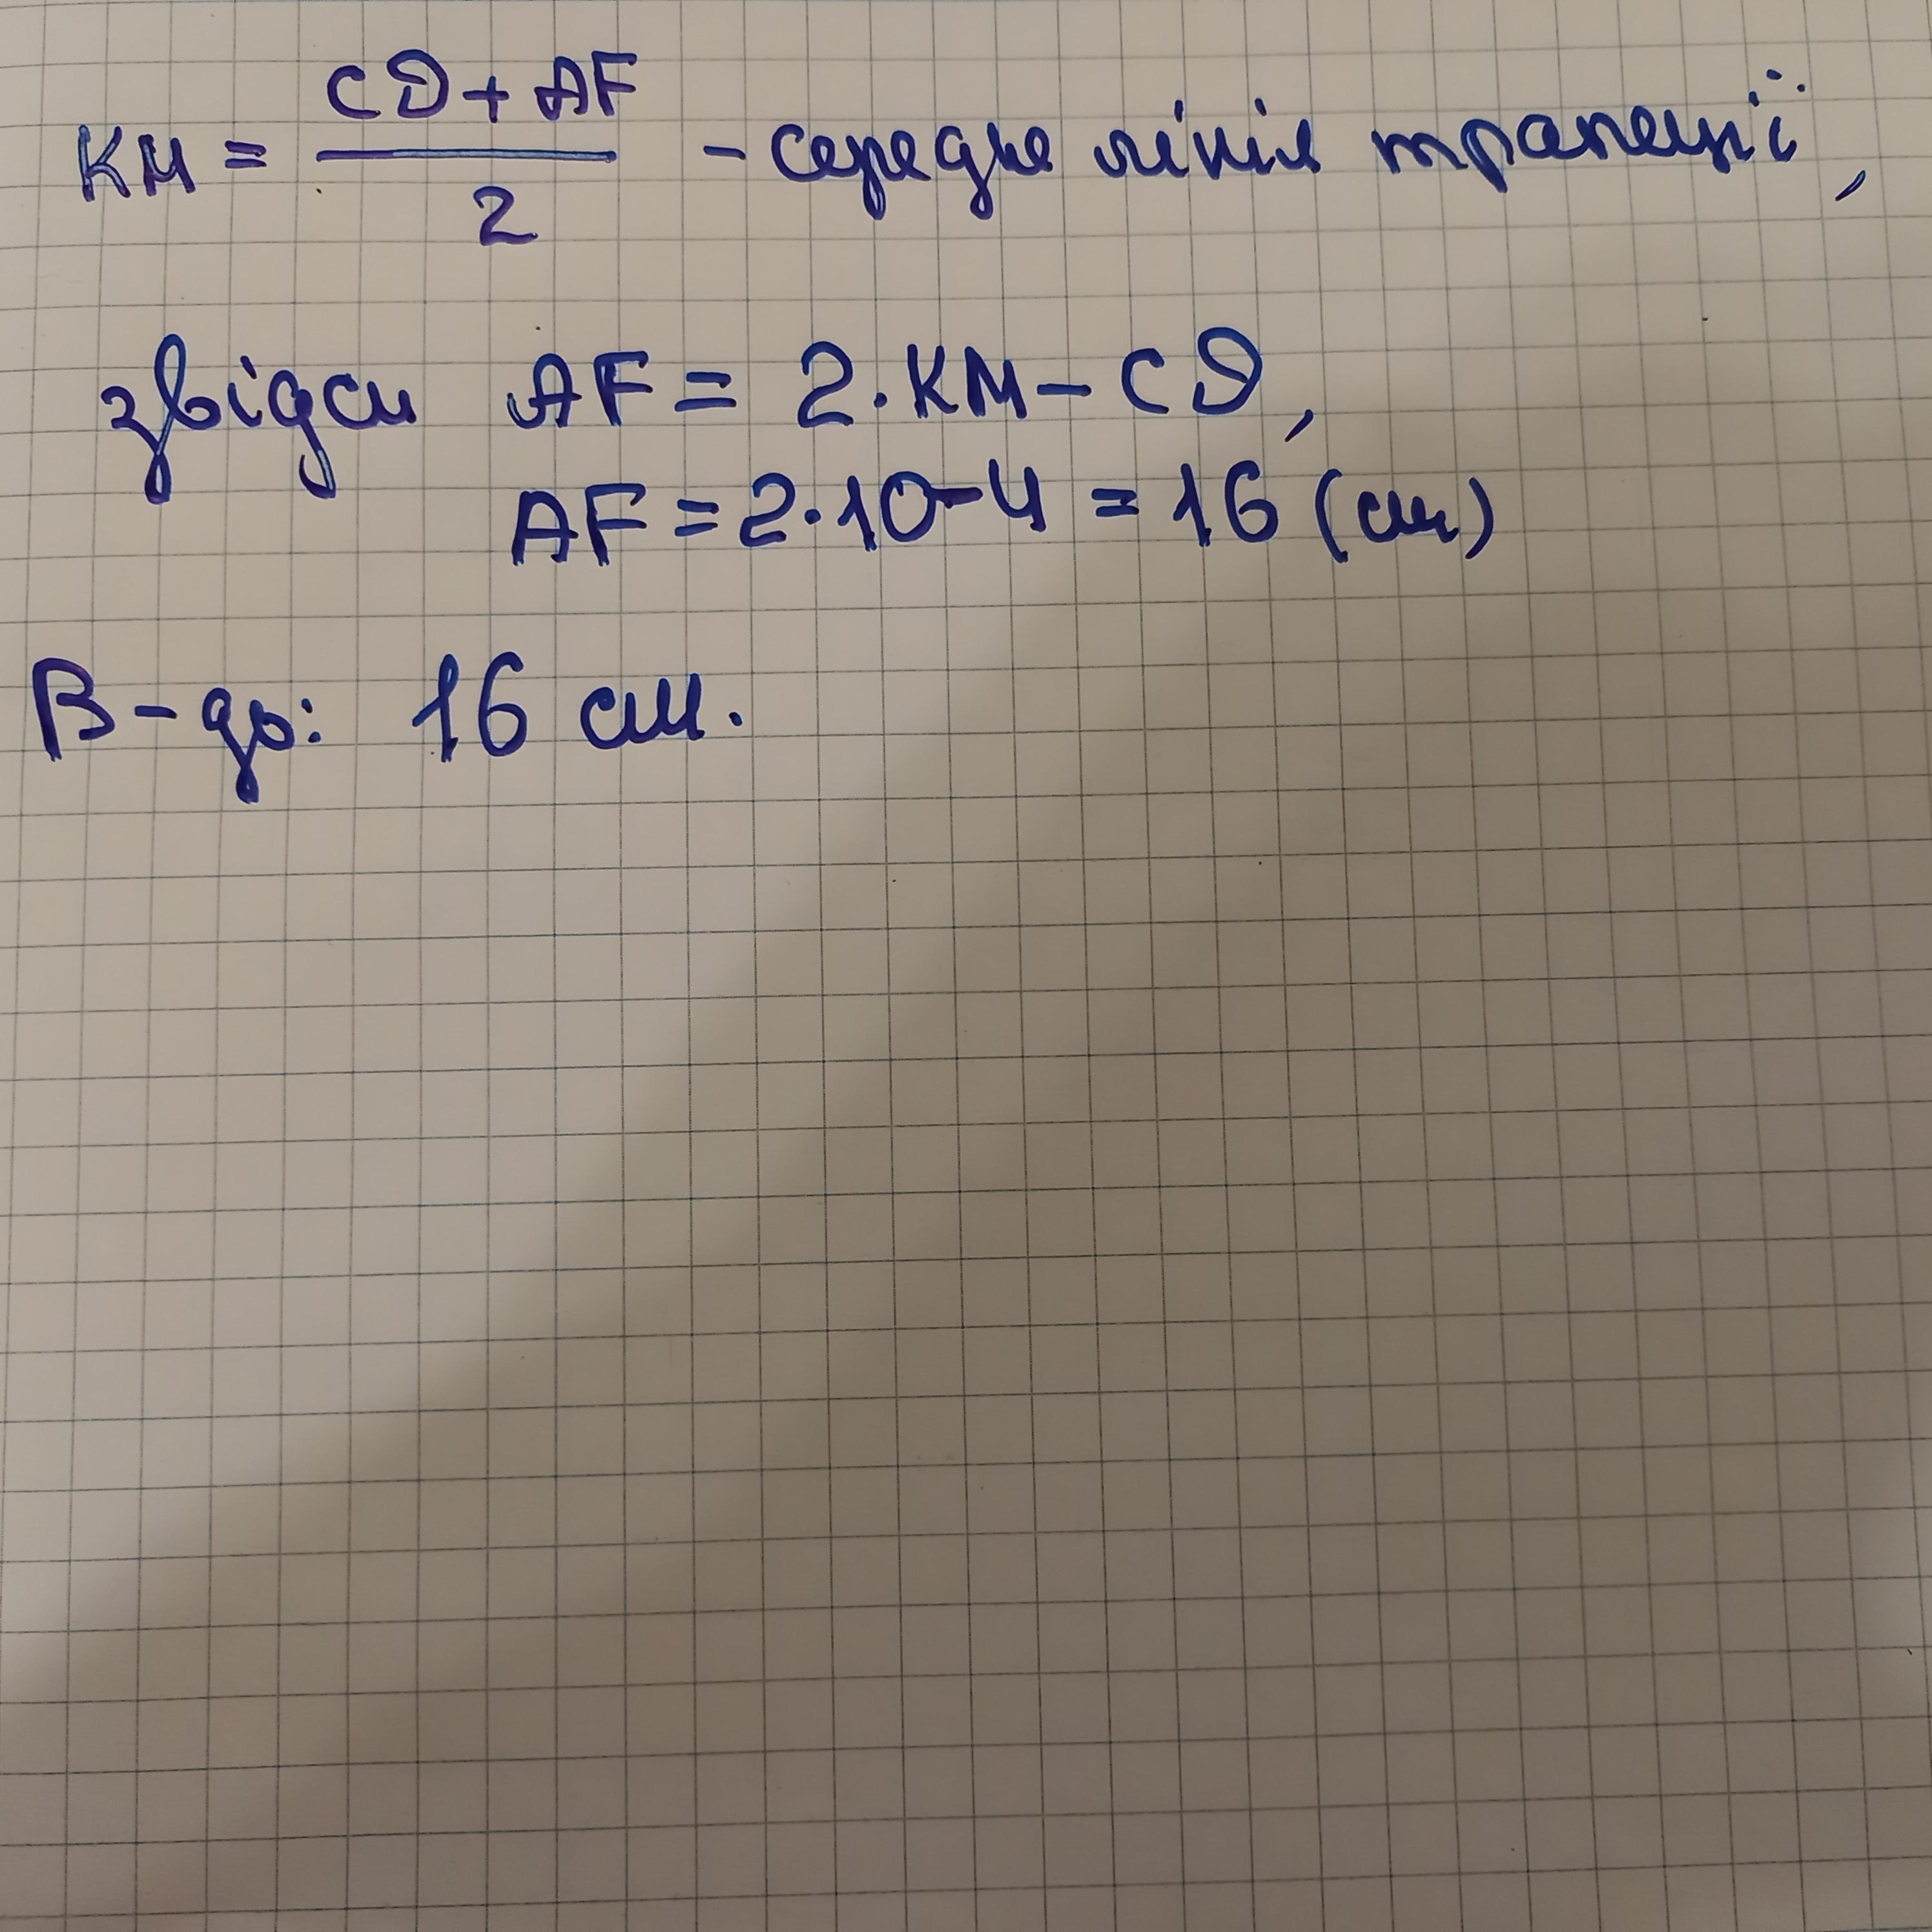 KM = (CD + AF) / 2 - середня лінія трапеції,
звідси AF = 2·KM - CD,
AF = 2·10-4 = 16 (см)
В-дь: 16 см.